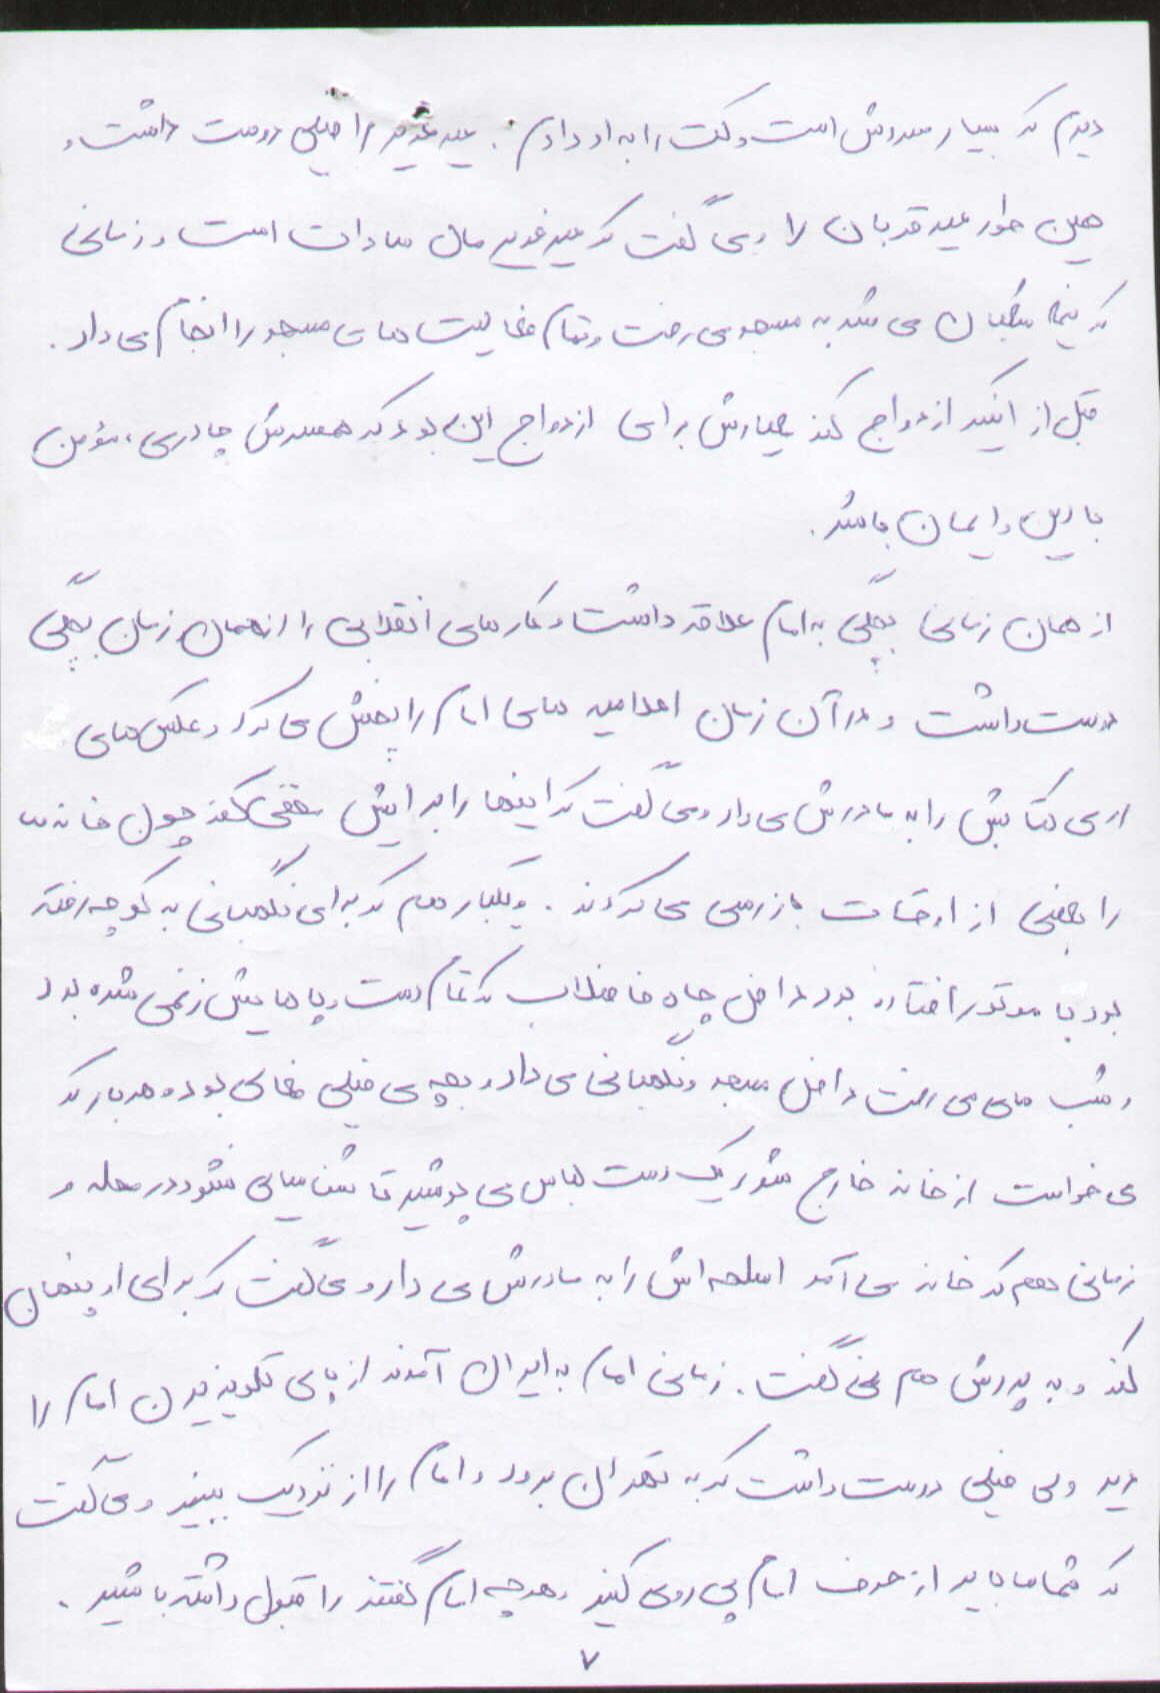 دیدم که بسیار سردش است و کت را به او دادم. عید غدیر را خیلی دوست داشت و
همین طور عید قربان را و می گفت که عید غدیر مال سادات است و زمانی
که نیمه شعبان می شد به مسجد می رفت و تمام فعالیت های مسجد را انجام می داد.
قبل از اینکه ازدواج کند معیارش برای ازدواج این بود که همسرش چادری، مؤمن
با دین و ایمان باشد.
از همان زمانی بچگی به امام علاقه داشت و کارهای انقلابی را از همان زمان بچگی
دوست داشت و در آن زمان اعلامیه های امام را پخش می کرد و عکس های
روی کتابش را به مادرش می داد و می گفت که اینها را برایش مخفی کند چون خانه
را بعضی از اوقات بازرسی می کردند. و یکبار هم که برای نگهبانی به کوچه رفته
بود با موتور افتاده بود داخل چاه فاضلاب که تمام دست و پاهایش زخمی شده بود
و شب های می رفت داخل مسجد و نگهبانی می داد و بچه ی خیلی فعالی بود و هر بار که
می خواست از خانه خارج شود یک دست لباس می پوشید تا شناسایی نشود در محله و
زمانی هم که خانه می آمد اسلحه اش را به مادرش می داد و می گفت که برای او پنهان
کند و به پدرش هم نمی گفت. زمانی امام به ایران آمدند از پای تلویزیون امام را
دید ولی خیلی دوست داشت که به تهران برود و امام را از نزدیک ببیند و می گفت
که شماها باید از حرف امام پی روی کنید و هر چه امام گفتند را قبول داشته باشید.
۷